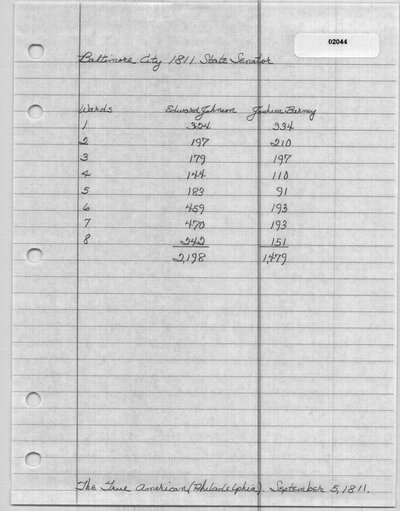 02044
Baltimore City 1811 State Senator
Wards Edward Johnson Joshua Barney
1 324 334
2 197 210
3 179 197
4 144 110
5 183 91
6 459 193
7 470 193
8 242 151
2,198 1,479
The True American (Philadelphia). September 5, 1811.